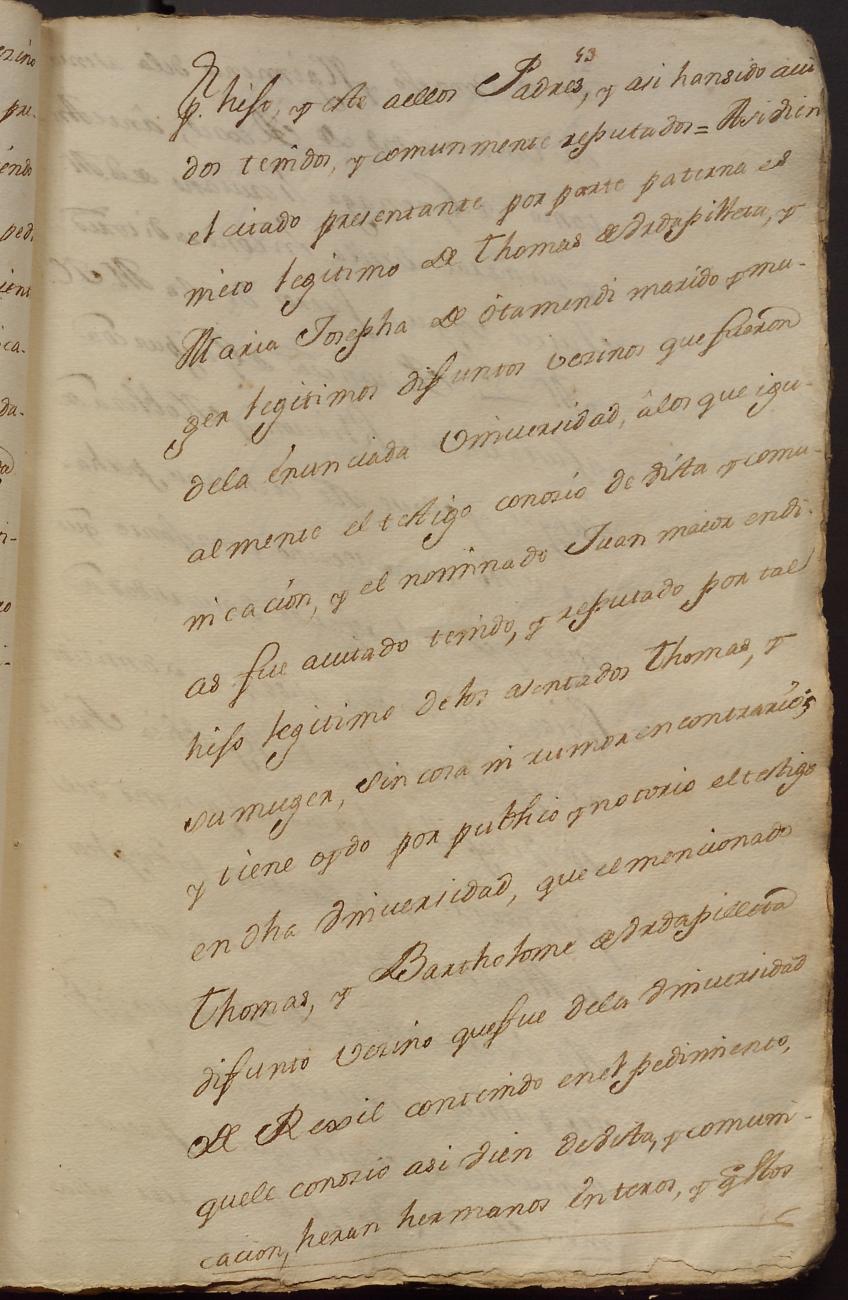 53
p.r hijo, y este aellos Padres, y asi hansido aui
dos tenidos, y comunmente reputados = Asi dien
el citado presentante por parte paterna es
nieto legitimo de Thomas de Urdapilleta, y
Maria Josepha de Otamendi marido y mu-
ger legitimos difuntos vezinos que fueron
dela enunciada Vniuersidad, âlos que igu-
almente el testigo conosio de vista y comu-
nicación, y el nominado Juan maior en di-
as fue auitado tenido, y reputado por tal
hijo legitimo delos asentados Thomas, y
su muger, sin cosa ni rumor en contrario;
y tiene oydo por publico y notorio el testigo
en dha Vniuersidad, que el mencionado
Thomas, y Bartholome de Urdapilleta
difunto vezino que fue dela Vniuersidad
de Rexil contenido en el pedimiento,
quele conosio asi bien de vista, y comuni-
cacion, heran hermanos enteros, y q.e estos